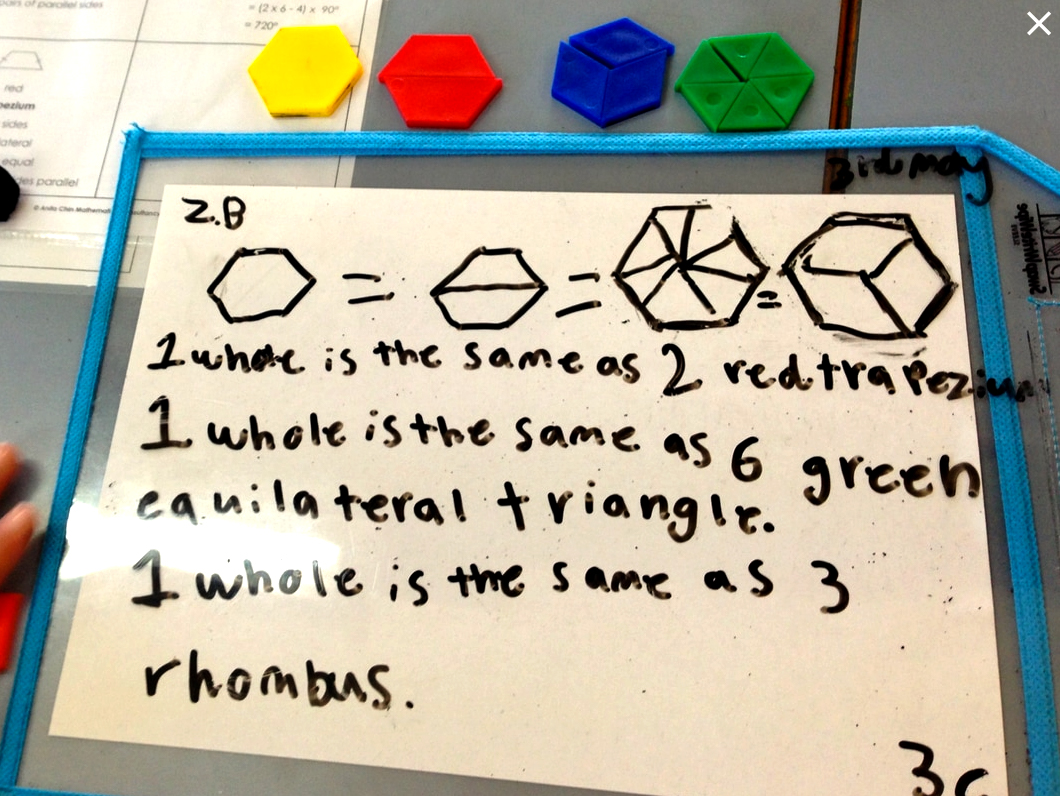 pairs of parallel sides
= (2 x 6 - 4) x 90°
= 720°
red
sides
equal
© Anita Chin
3rd may
2.B
= = =
1 whole is the same as 2 red trapezium
1 whole is the same as 6 green
equilateral triangle.
1 whole is the same as 3
rhombus.
3c